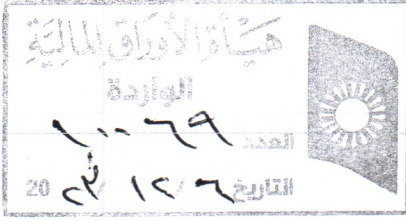 هيأة الأوراق المالية
الواردة
العدد ١٠٠٦٩
التاريخ ٦ / ١٢ / 20